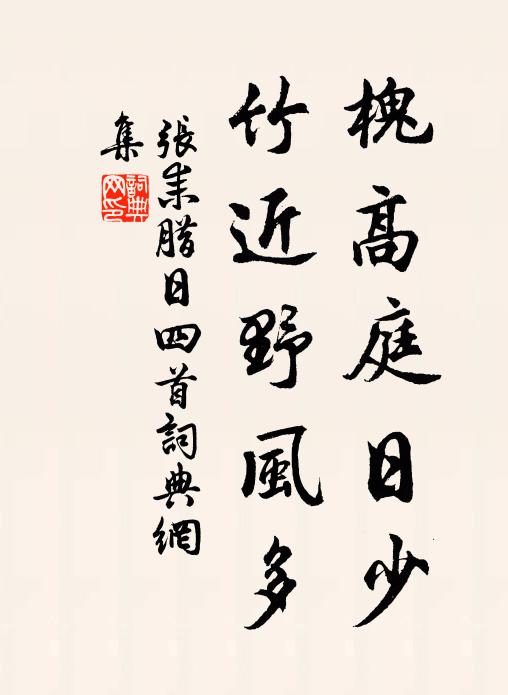 槐高庭日少
竹近野風多
張耒腊日四首詞典網
集
詞典
网印